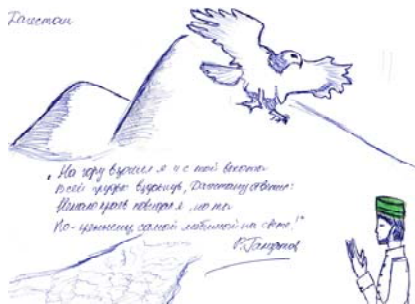 Дагестан
„На гору взошел я и с той высоты
Всей грудью вздохнув, Дагестану ответил:
Немало краёв повидал я, но ты
По-прежнему самый любимый на свете!"
Р. Гамзатов